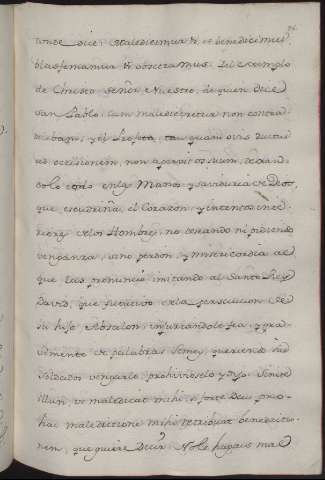 donde dice: Maledicimur et benedicimus
blasfemamur et obsecramus. Del exemplo
de Christo Señor Nuestro, de quien dice
san Pablo: cum malediceretur non contra
decebam, y el Profeta, tan quam ovis ductus
ad occisionem, non aperuit os suum, dexan
dolo todo en las Manos y sabiduria de Dios,
que escudriña, el Corazon, y intentos inte
riores de los Hombres, no deseando ni pidiendo
venganza, sino perdon, y misericordia al
que las pronunció imitando al Santo Rey
David, que fugitivo de la persecucion de
su hijo Absalon, injuriandole fea, y gra
vemente de palabras Semey, queriendo sus
Soldados vengarle, prohivióselo y dijo: Sinite
illum, ut maledicat mihi, si forte Deus pro
hac maledictione mihi retribuat benedictio
nem, que quiere decir: No le hagais mal